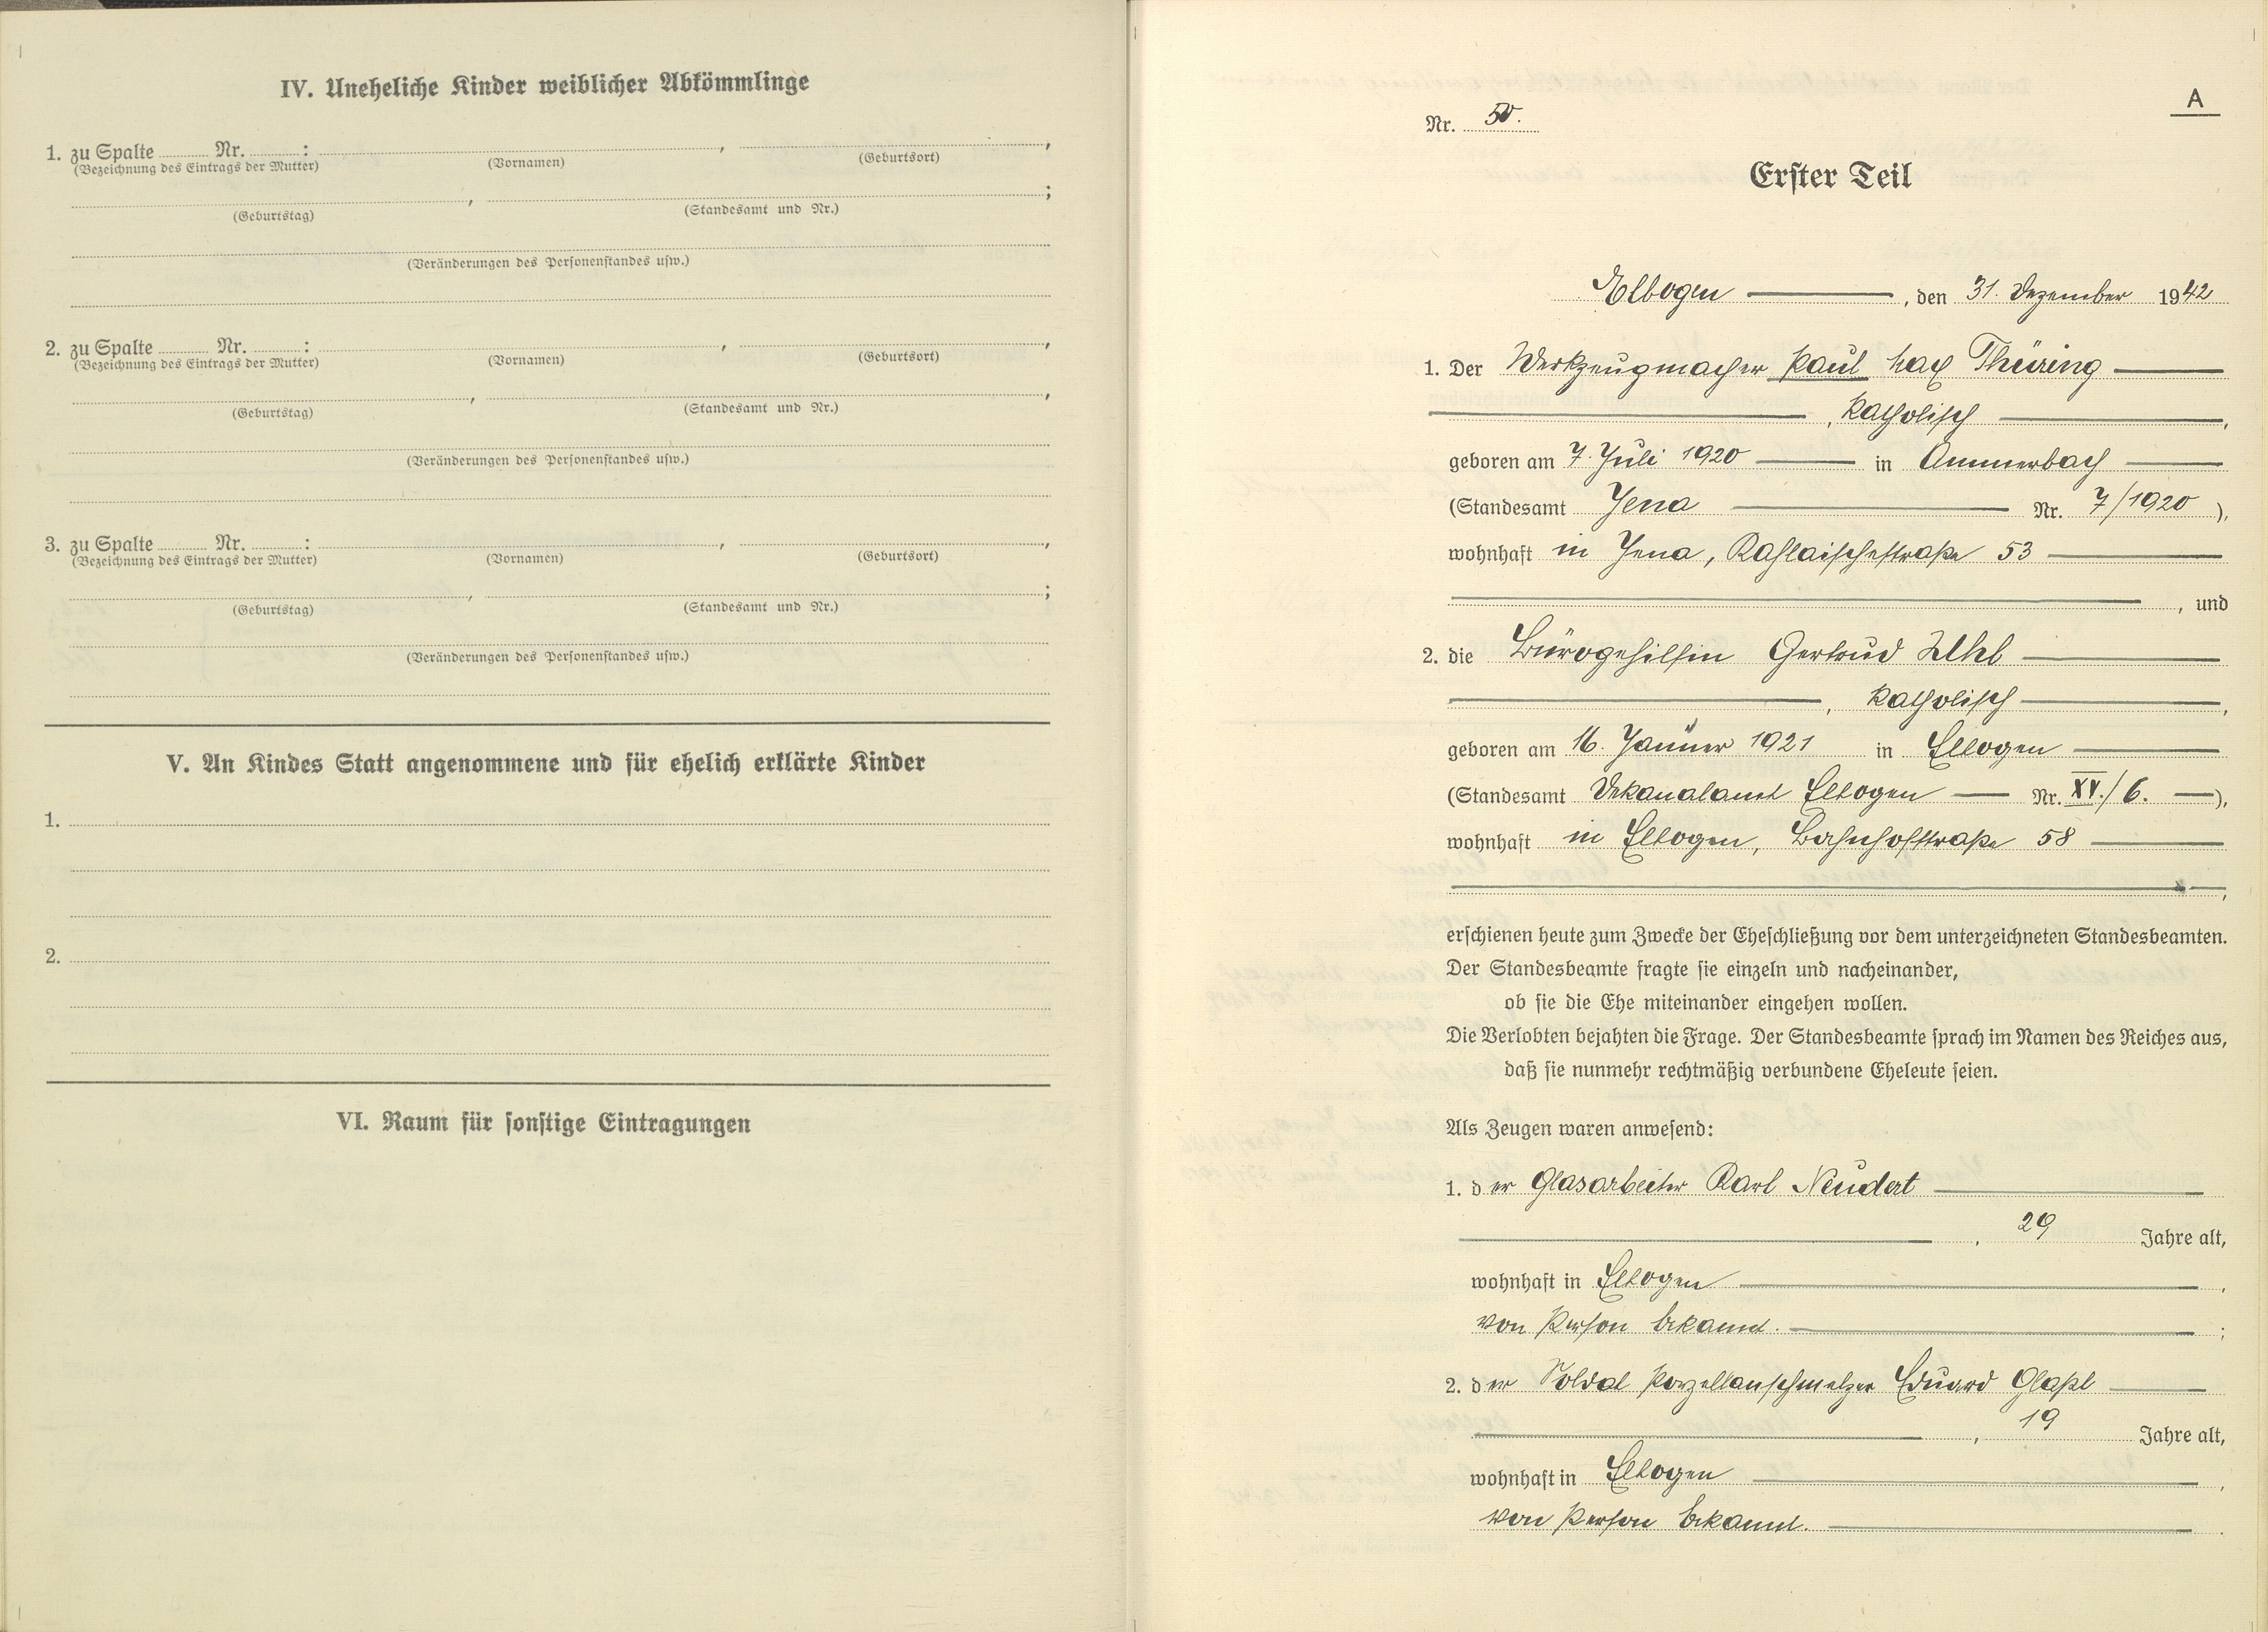 IV. Uneheliche Kinder weiblicher Abkömmlinge
1. zu Spalte Nr. : , ,
(Bezeichnung des Eintrags der Mutter) (Vornamen) (Geburtsort)
, ;
(Geburtstag) (Standesamt und Nr.)
(Veränderungen des Personenstandes usw.)
2. zu Spalte Nr. : , ,
(Bezeichnung des Eintrags der Mutter) (Vornamen) (Geburtsort)
, ,
(Geburtstag) (Standesamt und Nr.)
(Veränderungen des Personenstandes usw.)
3. zu Spalte Nr. : , ,
(Bezeichnung des Eintrags der Mutter) (Vornamen) (Geburtsort)
, ;
(Geburtstag) (Standesamt und Nr.)
(Veränderungen des Personenstandes usw.)
V. An Kindes Statt angenommene und für ehelich erklärte Kinder
1.
2.
VI. Raum für sonstige Eintragungen
A
Nr. 50.
Erster Teil
Elbogen, den 31. Dezember 1942
1. Der Werkzeugmacher Paul Max Thüring
, katholisch,
geboren am 7. Juli 1920 in Ammerbach
(Standesamt Jena Nr. 7/1920),
wohnhaft in Jena, Kahlaischestraße 53
, und
2. die Bürogehilfin Gertrud
, katholisch,
geboren am 16. Jänner 1921 in Elbogen
(Standesamt Dekanalamt Elbogen Nr. XV./6.),
wohnhaft in Elbogen, Bahnhofstraße 58
,
erschienen heute zum Zwecke der Eheschließung vor dem unterzeichneten Standesbeamten.
Der Standesbeamte fragte sie einzeln und nacheinander,
ob sie die Ehe miteinander eingehen wollen.
Die Verlobten bejahten die Frage. Der Standesbeamte sprach im Namen des Reiches aus,
daß sie nunmehr rechtmäßig verbundene Eheleute seien.
Als Zeugen waren anwesend:
1. der Glasarbeiter Karl Neudert
, 29 Jahre alt,
wohnhaft in Elbogen,
von Person bekannt. ;
2. der Soldat Porzellanschmelzer Eduard Glaßl
, 19 Jahre alt,
wohnhaft in Elbogen,
von Person bekannt.